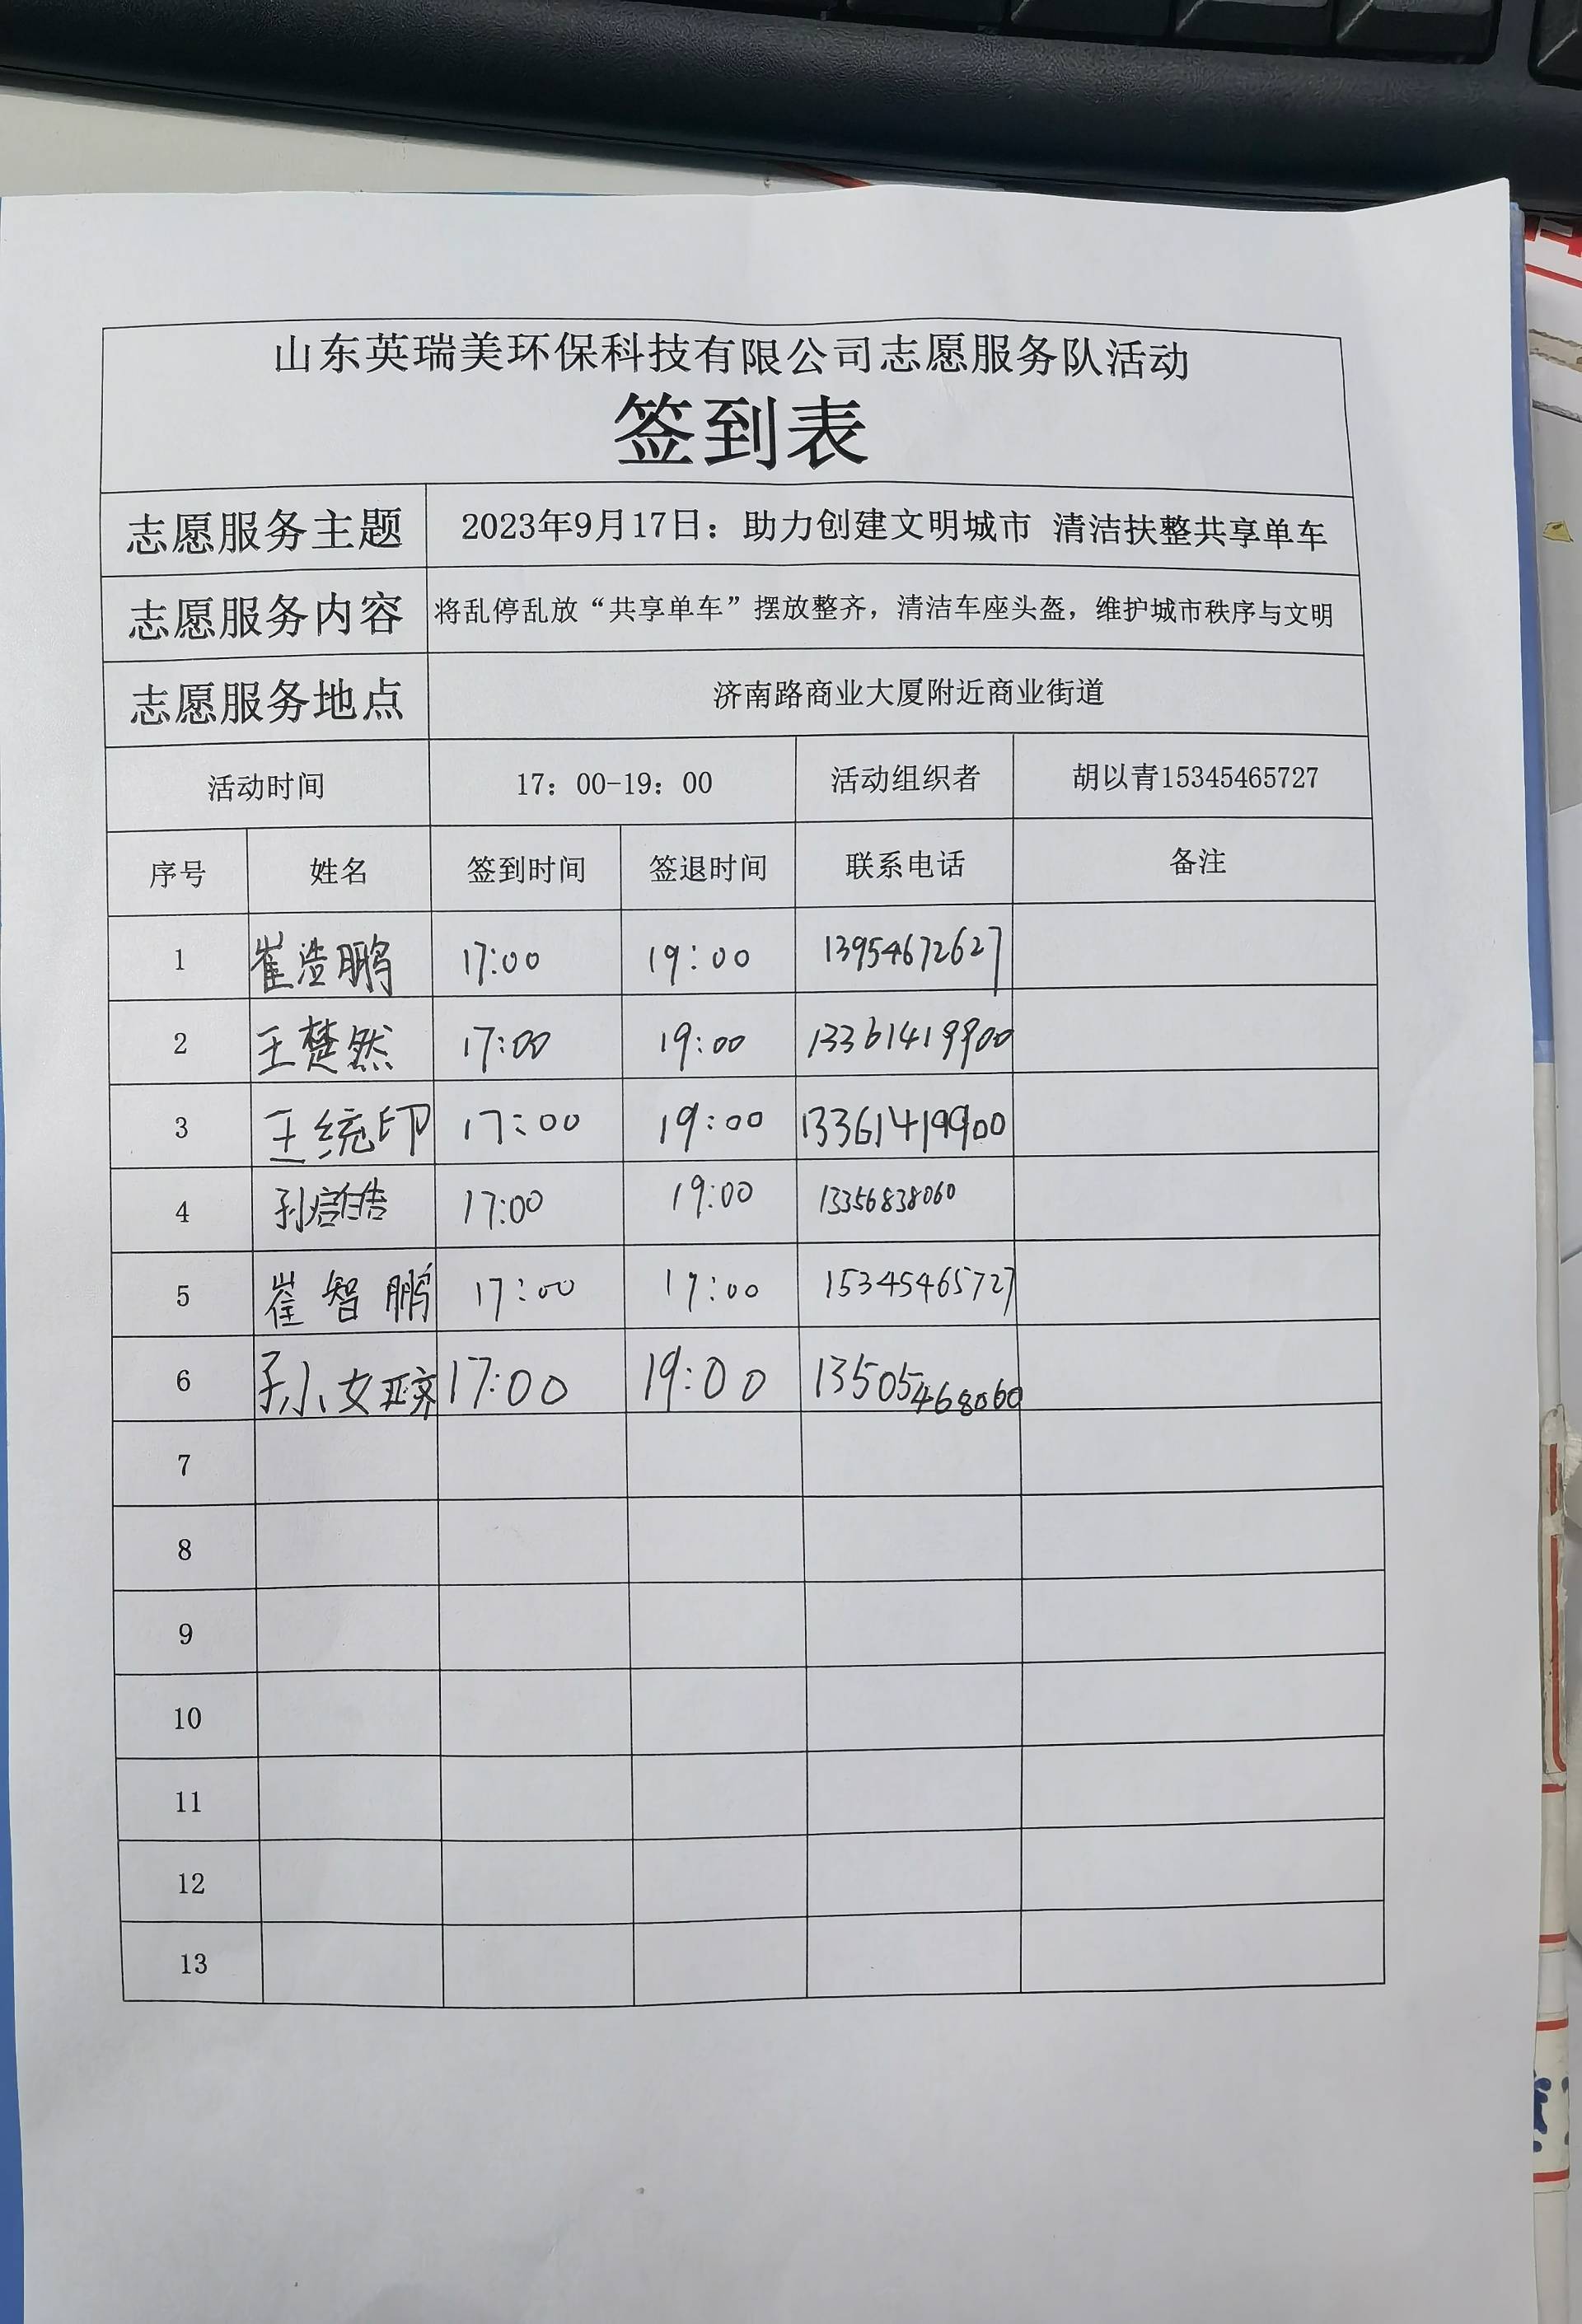 山东英瑞美环保科技有限公司志愿服务队活动
签到表
志愿服务主题 2023年9月17日：助力创建文明城市 清洁扶整共享单车
志愿服务内容 将乱停乱放“共享单车”摆放整齐，清洁车座头盔，维护城市秩序与文明
志愿服务地点 济南路商业大厦附近商业街道
活动时间 17：00-19：00 活动组织者 胡以青15345465727
序号 姓名 签到时间 签退时间 联系电话 备注
1 崔浩鹏 17:00 19:00 13954672627
2 王楚然 17:00 19:00 13361419900
3 王统印 17:00 19:00 13361419900
4 17:00 19:00 13356838060
5 崔智鹏 17:00 19:00 15345465727
6 17:00 19:00 13505468060
7
8
9
10
11
12
13